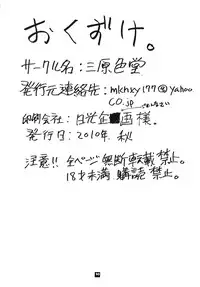 おくずけ。
サークル名：三原色堂
発行元連絡先：mkhxy177@yahoo
co.jp
印刷会社：日光企画様。
発行日：2010年.秋
注意!! 全ページ無断転載禁止。
18才未満 購読 禁止。